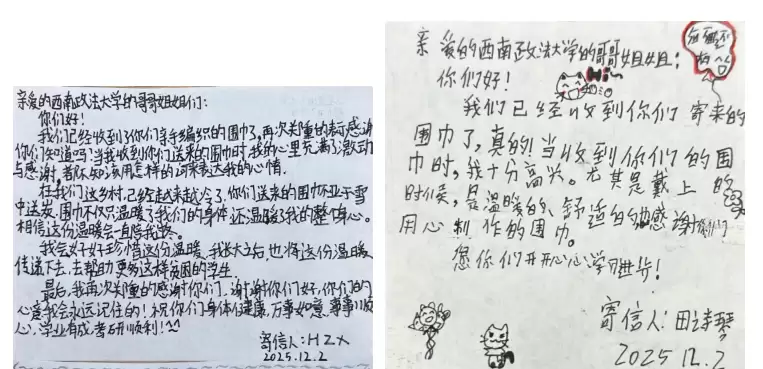 亲爱的西南政法大学的哥哥姐姐们:
你们好!
我们已经收到了你们亲手编织的围巾了,再次关隆的表示感谢
你们知道吗?当我收到你们送来的围巾时,我的心里充满了激动
与感谢,都不知该用怎样的词来表达我的心情.
在我们这乡村,已经越来越冷了,你们送来的围巾亦亚于雪
中送炭,围巾不仅只温暖了我们的身体,还温暖了我的整身心。
相信这份温暖会一直陪我
我会好好珍惜这份温暖,我长大后,也将这份温暖
传递下去,去帮助更多这样贫困的学生.
最后,我再次关隆的感谢你们,谢谢你们好,你们的
心意我会永远记住的!祝你们身体健康,万事如意,事事顺
心,学业有成,考研顺利!^^
寄信人:HZX
2025.12.2
亲爱的西南政法大学的哥哥姐姐:
你们好!
Hi~
我们已经收到你们寄来的
围巾了,真的!当收到你们的围
巾时,我十分高兴。尤其是戴上的
时候,是温暖的、舒适的 感谢你们
用心制作的围巾。
您你们开开心心学习进步!
寄信人:田诗琴
2025 12.2